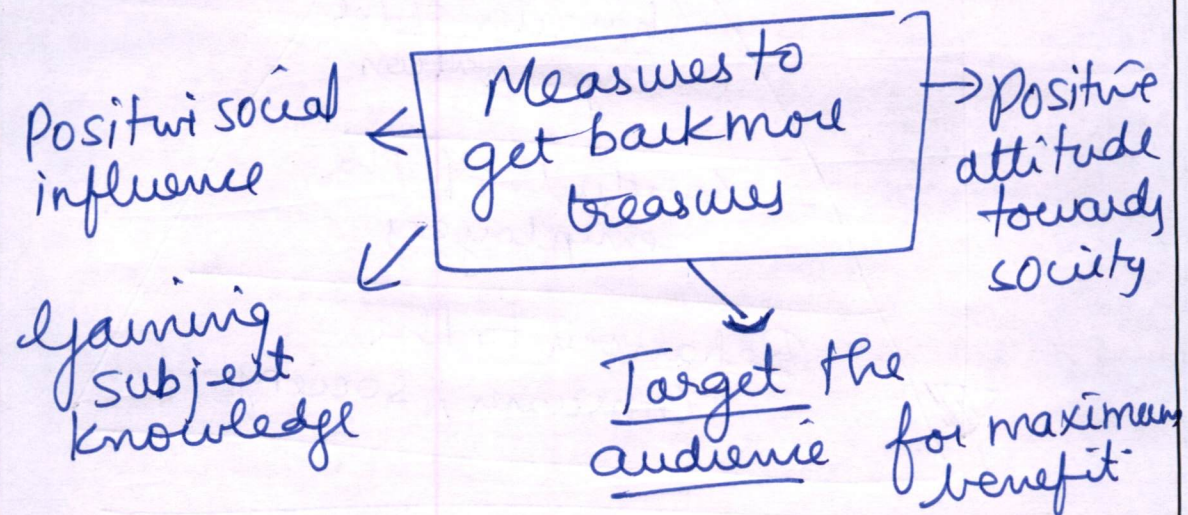 Measures to
get back more
treasures
Positive social
influence
Positive
attitude
towards
society
Gaining
subject
knowledge
Target the
audience for maximum
benefit